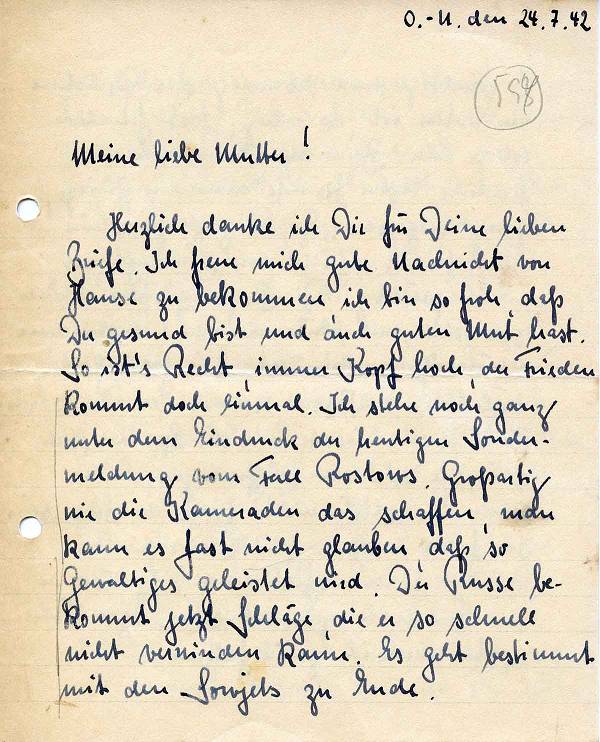 O.-U. den 24.7.42
598
Meine liebe Mutter!
Herzlich danke ich Dir für Deine lieben
Briefe. Ich freue mich gute Nachricht von
Hause zu bekommen, ich bin so froh, daß
Du gesund bist und auch guten Mut hast.
So ist's Recht, immer Kopf hoch, der Frieden
kommt doch einmal. Ich stehe noch ganz
unter dem Eindruck der heutigen Sonder-
meldung vom Fall Rostows. Großartig
wie die Kameraden das schaffen, man
kann es fast nicht glauben, daß so
Gewaltiges geleistet wird. Der Russe be-
kommt jetzt Schläge, die er so schnell
nicht verwinden kann. Es geht bestimmt
mit den Sowjets zu Ende.